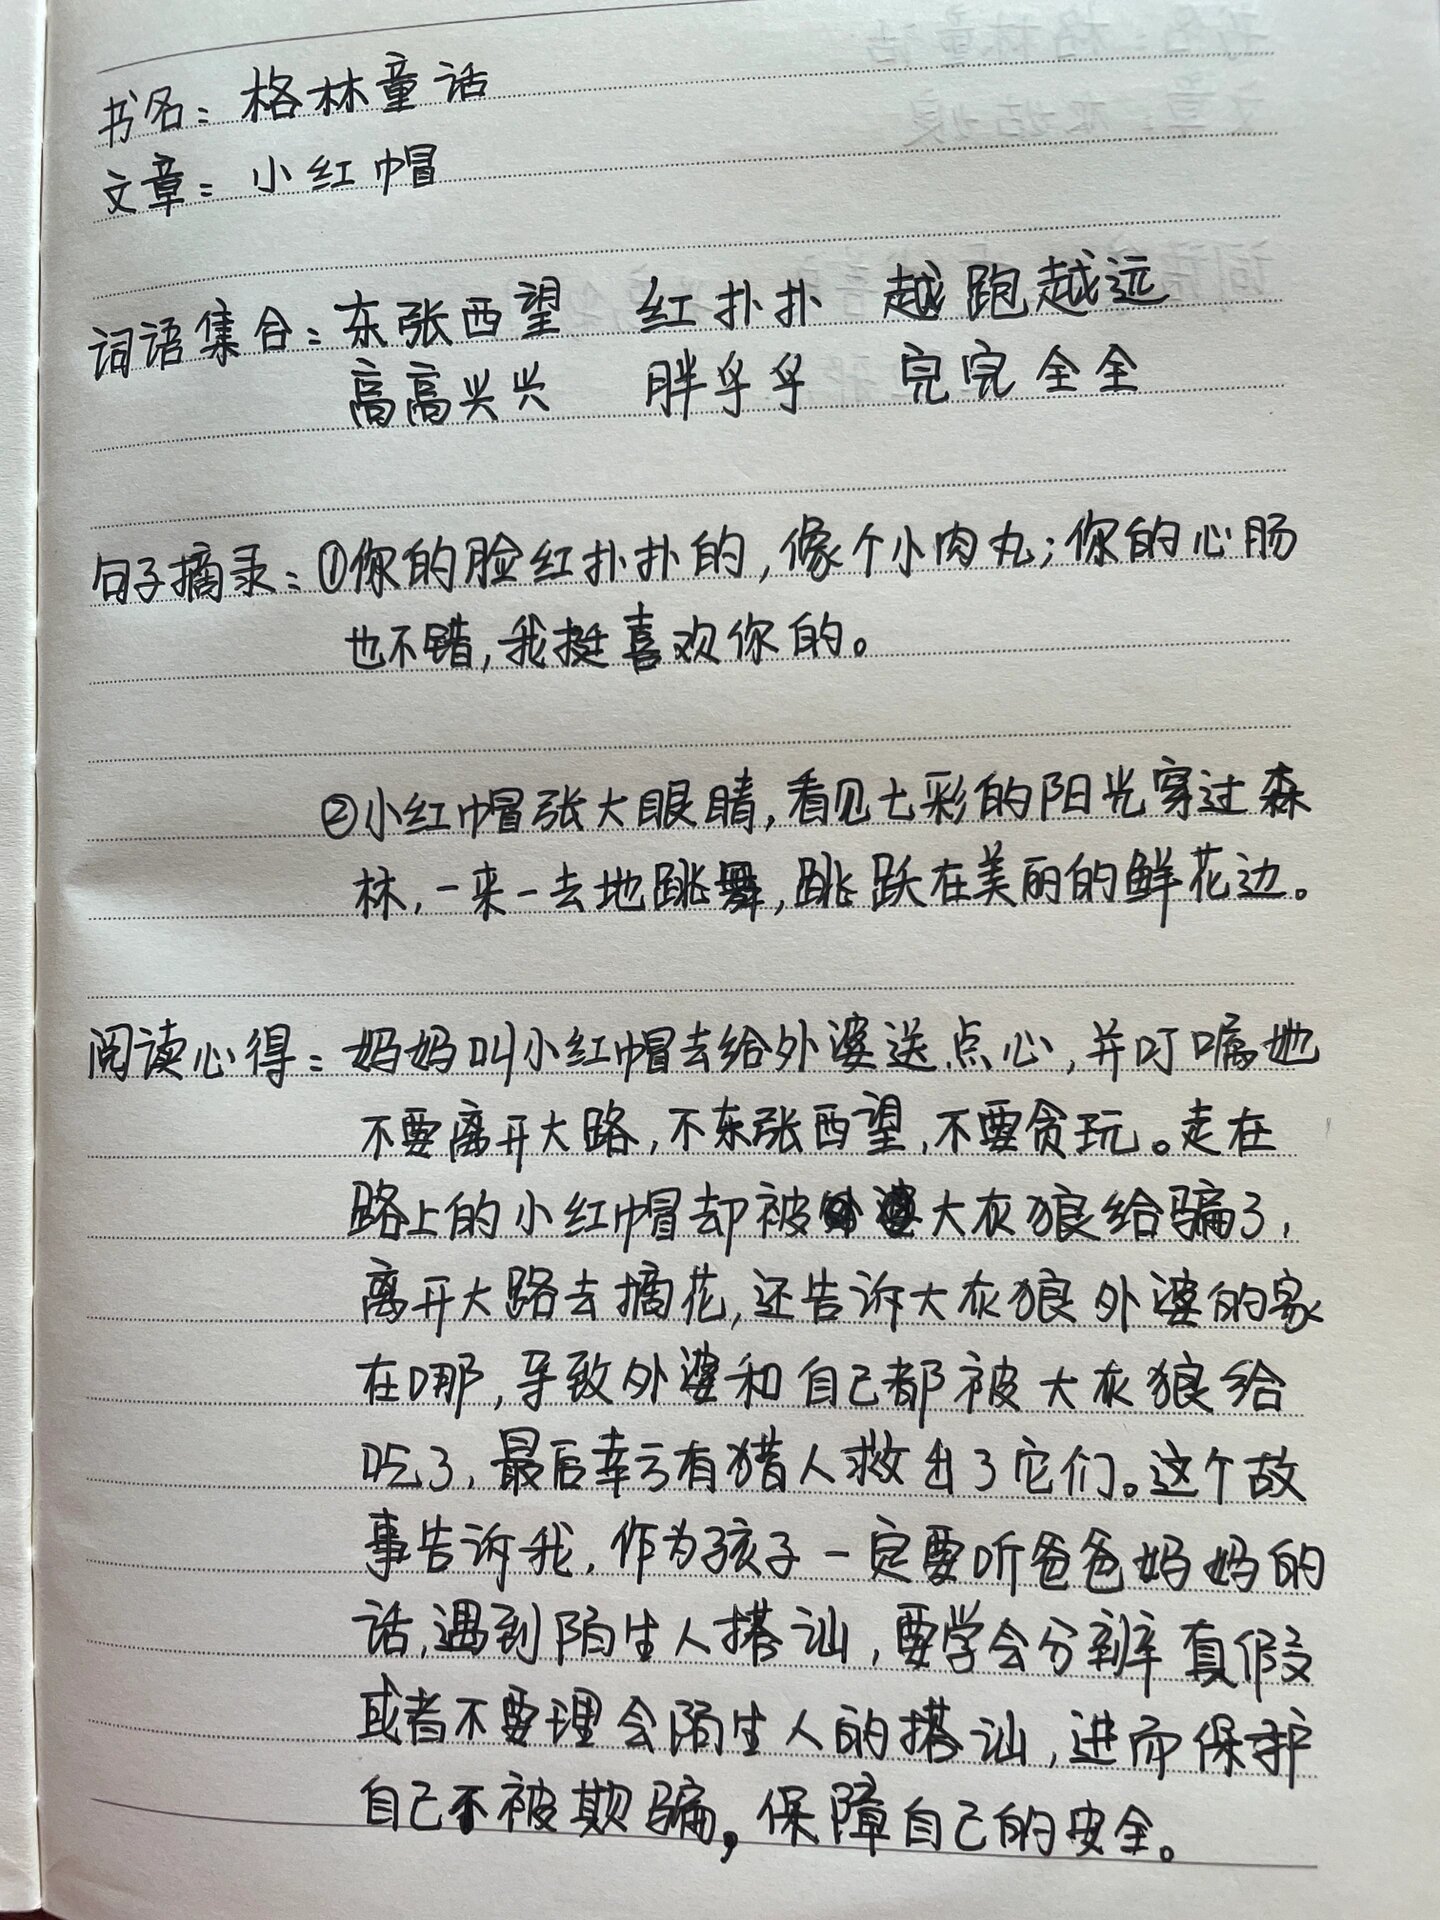 书名：格林童话
文章：小红帽
词语集合：东张西望 红扑扑 越跑越远
高高兴兴 胖乎乎 完完全全
句子摘录：①你的脸红扑扑的，像个小肉丸；你的心肠
也不错，我挺喜欢你的。
②小红帽张大眼睛，看见七彩的阳光穿过森
林，一来一去地跳舞，跳跃在美丽的鲜花边。
阅读心得：妈妈叫小红帽去给外婆送点心，并叮嘱她
不要离开大路，不东张西望，不要贪玩。走在
路上的小红帽却被大灰狼给骗了，
离开大路去摘花，还告诉大灰狼外婆的家
在哪，导致外婆和自己都被大灰狼给
吃了，最后幸亏有猎人救出了它们。这个故
事告诉我，作为孩子一定要听爸爸妈妈的
话，遇到陌生人搭讪，要学会分辨真假
或者不要理会陌生人的搭讪，进而保护
自己不被欺骗，保障自己的安全。